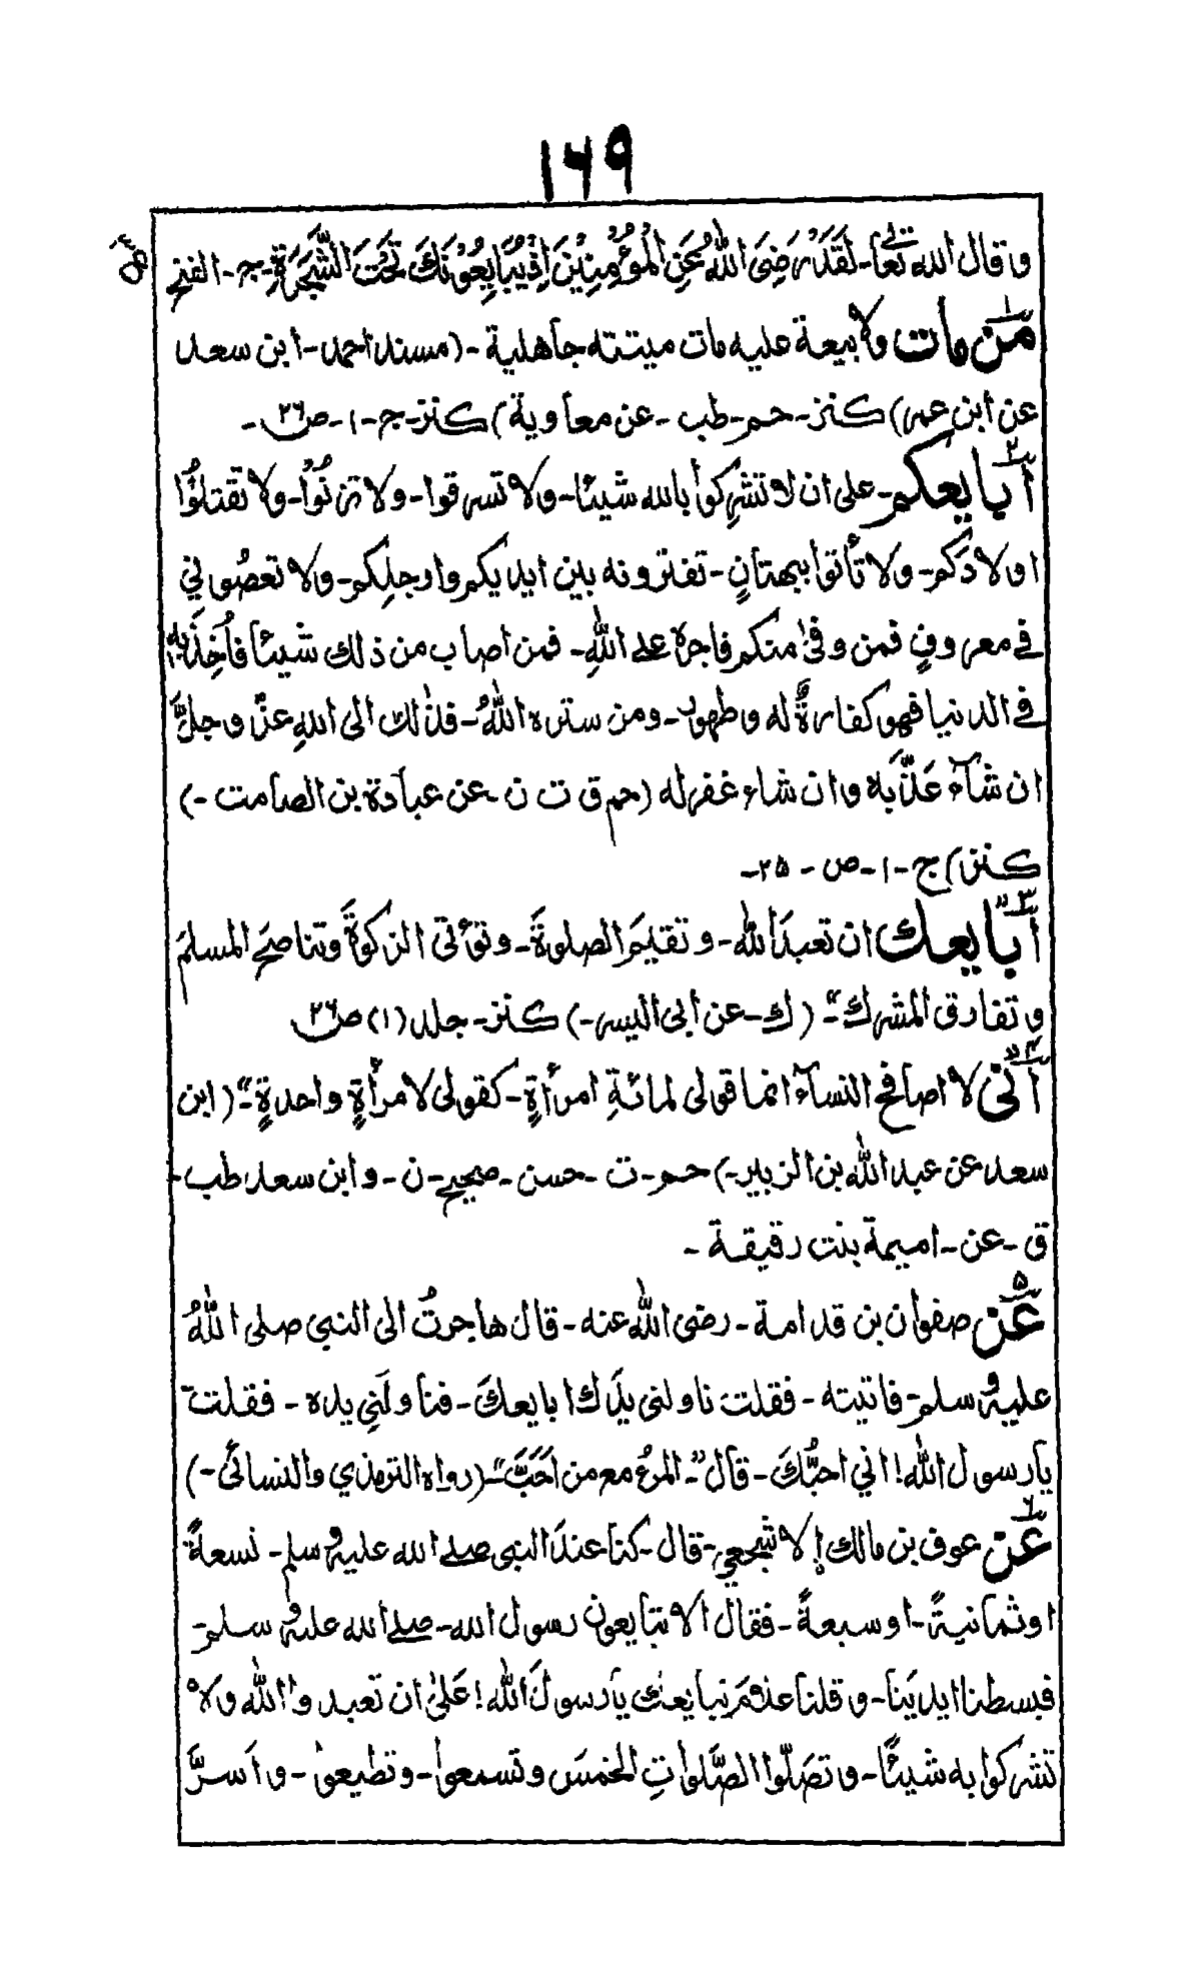 ۱۶۹
وقال الله تعالى۔ لَقَدْ رَضِيَ اللهُ عَنِ الْمُؤْمِنِيْنَ اِذْ يُبَايِعُوْنَكَ تَحْتَ الشَّجَرَةِ۔ ج۔ الفتح
۱ مَن مات ولا بيعة عليه مات ميتته جاهلية۔ (مسند احمد۔ ابن سعد
عن ابن عمر) كنز۔ حم۔ طب۔ عن معاوية) كنز۔ ج۔ ۱۔ ص ۲۶۔
۲ أبايعكم۔ على ان لا تشركوا بالله شيئا۔ ولا تسرقوا۔ ولا تزنُوْا۔ ولا تقتلُوْا
اولادكم۔ ولا تأتوا ببهتانٍ۔ تفترونه بين ايديكم وارجلِكم۔ ولا تعصُوني
في معروفٍ فمن وفىٰ منكم فاجره على اللهِ۔ فمن اصاب من ذلك شيئا فأُخِذَ به
في الدنيا فهو كفارةٌ له وطهور۔ ومن ستره اللهُ۔ فذٰلك الى اللهِ عزّ وجلَّ
ان شآءَ عَذّبَه وان شاء غفر له (حم ق ت ن عن عبادة بن الصامت۔)
كنز) ج۔ ۱۔ ص۔ ۲۵۔
۳ أبايعك ان تعبدَ الله۔ وتقيمَ الصلوةَ۔ وتؤتى الزكوٰةَ وتناصحَ المسلمَ
وتفارق المشرك"۔ (ك۔ عن أبى اليسر۔) كنز۔ جلد (۱) ص ۲۶
۴ "انّى لا اصافح النسآءَ انما قولى لمائةِ امرأةٍ۔ كقولى لامرأةٍ واحدةٍ"۔ (ابن
سعد عن عبد الله بن الزبير۔) حم۔ ت۔ حسن۔ صحيح۔ ن۔ وابن سعد۔ طب۔
ق۔ عن۔ اميمة بنت رقيقة۔
۵ عَن صفوان بن قدامة۔ رضى الله عنه۔ قال هاجرتُ الى النبي صلى اللهُ
عليه وسلم۔ فاتيته۔ فقلت ناولنى يدَك ابايعكَ۔ فناولَنِي يده۔ فقلت
يا رسول الله! اني احبُّكَ۔ قال۔ "المرءُ مع من اَحَبَّ"۔ (رواه الترمذي والنسائى۔)
۶ عَن عوف بن مالك إلاشجعي۔ قال۔ كنا عندَ النبى صلے الله عليه وسلم۔ تسعةً
اوثمانيةً۔ اوسبعةً۔ فقال الا تبايعون رسول الله۔ صلے الله عليه وسلم۔
فبسطنا ايديَنا۔ وقلنا علامَ نبايعك يا رسولَ الله! عَلىٰ ان تعبدوا الله ولا
تشركوا به شيئًا۔ وتصَلّوا الصَّلواتِ الخمسَ وتسمعوا۔ وتطيعوا۔ واَسرَّ